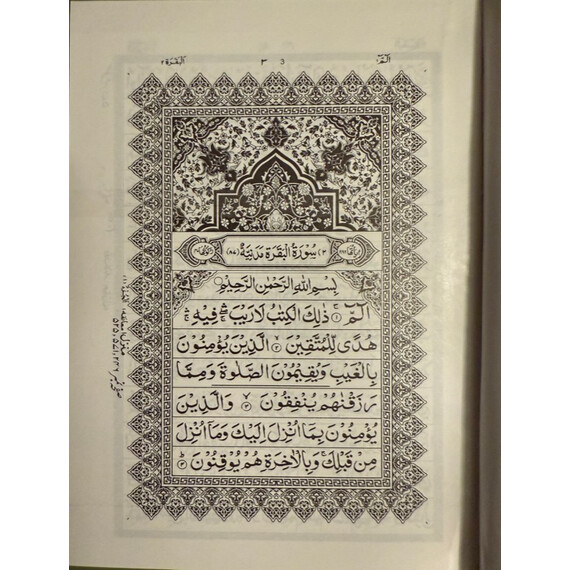 الٓمّٓ ٣ 3 البقرة ٢
(٢) سُوْرَةُ الْبَقَرَةِ مَدَنِيَّةٌ (٨٧)
بِسْمِ اللّٰهِ الرَّحْمٰنِ الرَّحِيْمِ
الٓمّٓ ۝١ ذٰلِكَ الْكِتٰبُ لَا رَيْبَ ۛۚ فِيْهِ ۛۚ
هُدًى لِّلْمُتَّقِيْنَ ۝٢ الَّذِيْنَ يُؤْمِنُوْنَ
بِالْغَيْبِ وَيُقِيْمُوْنَ الصَّلٰوةَ وَمِمَّا
رَزَقْنٰهُمْ يُنْفِقُوْنَ ۝٣ وَالَّذِيْنَ
يُؤْمِنُوْنَ بِمَآ اُنْزِلَ اِلَيْكَ وَمَآ اُنْزِلَ
مِنْ قَبْلِكَ وَبِالْاٰخِرَةِ هُمْ يُوْقِنُوْنَ ۝٤